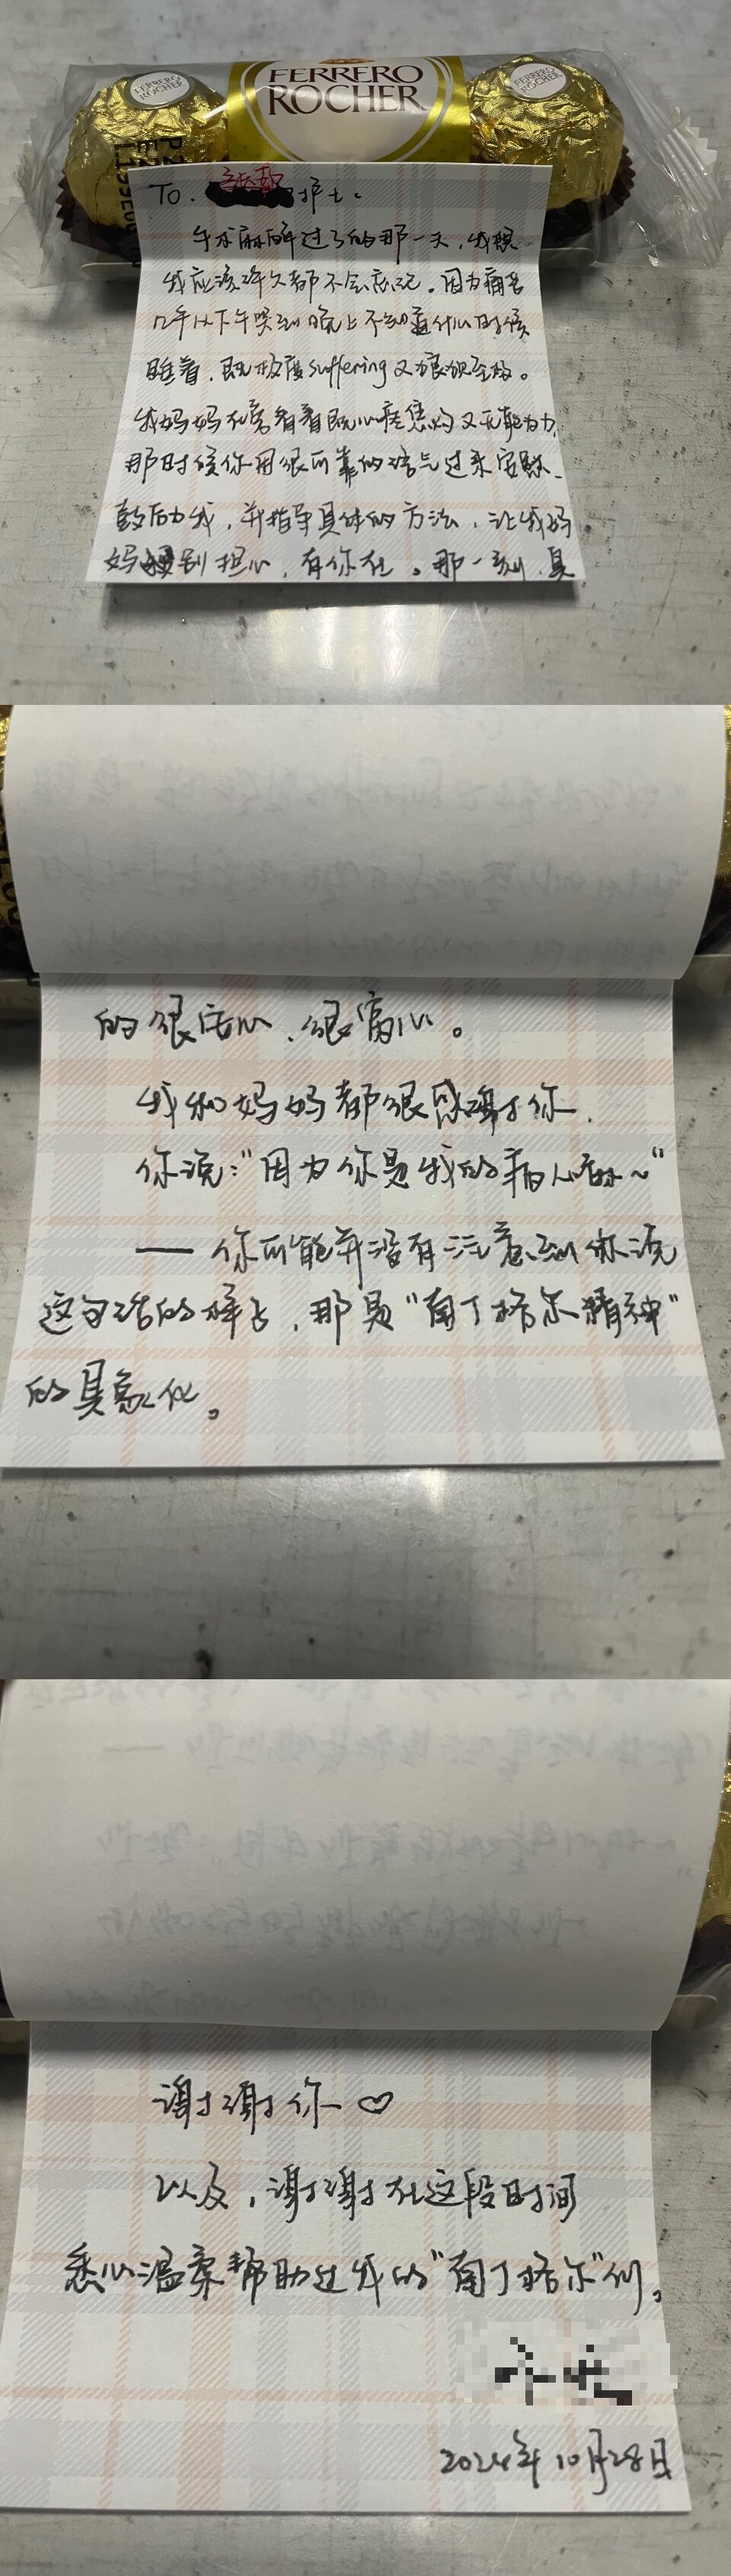 FERRERO
ROCHER
FERRERO
ROCHER
FERRERO
ROCHER
To. 护士。
手术麻醉过了的那一天，我想
我应该许久都不会忘记。因为痛苦
叫从下午哭到晚上不知道什么时候
睡着，既极度suffering又狼狈至极。
我妈妈在旁看着既心疼焦灼又无能为力，
那时候你用很可靠的语气过来安慰、
鼓励我，并指导具体的方法，让我妈
妈别担心，有你在。那一刻，真
的很安心、很窝心。
我和妈妈都很感谢你，
你说：“因为你是我的病人嘛~”
——你可能并没有注意到你说
这句话的样子，那是“南丁格尔精神”
的具象化。
谢谢你♡
以及，谢谢在这段时间
悉心温柔帮助过我的“南丁格尔”们。
2024年10月28日